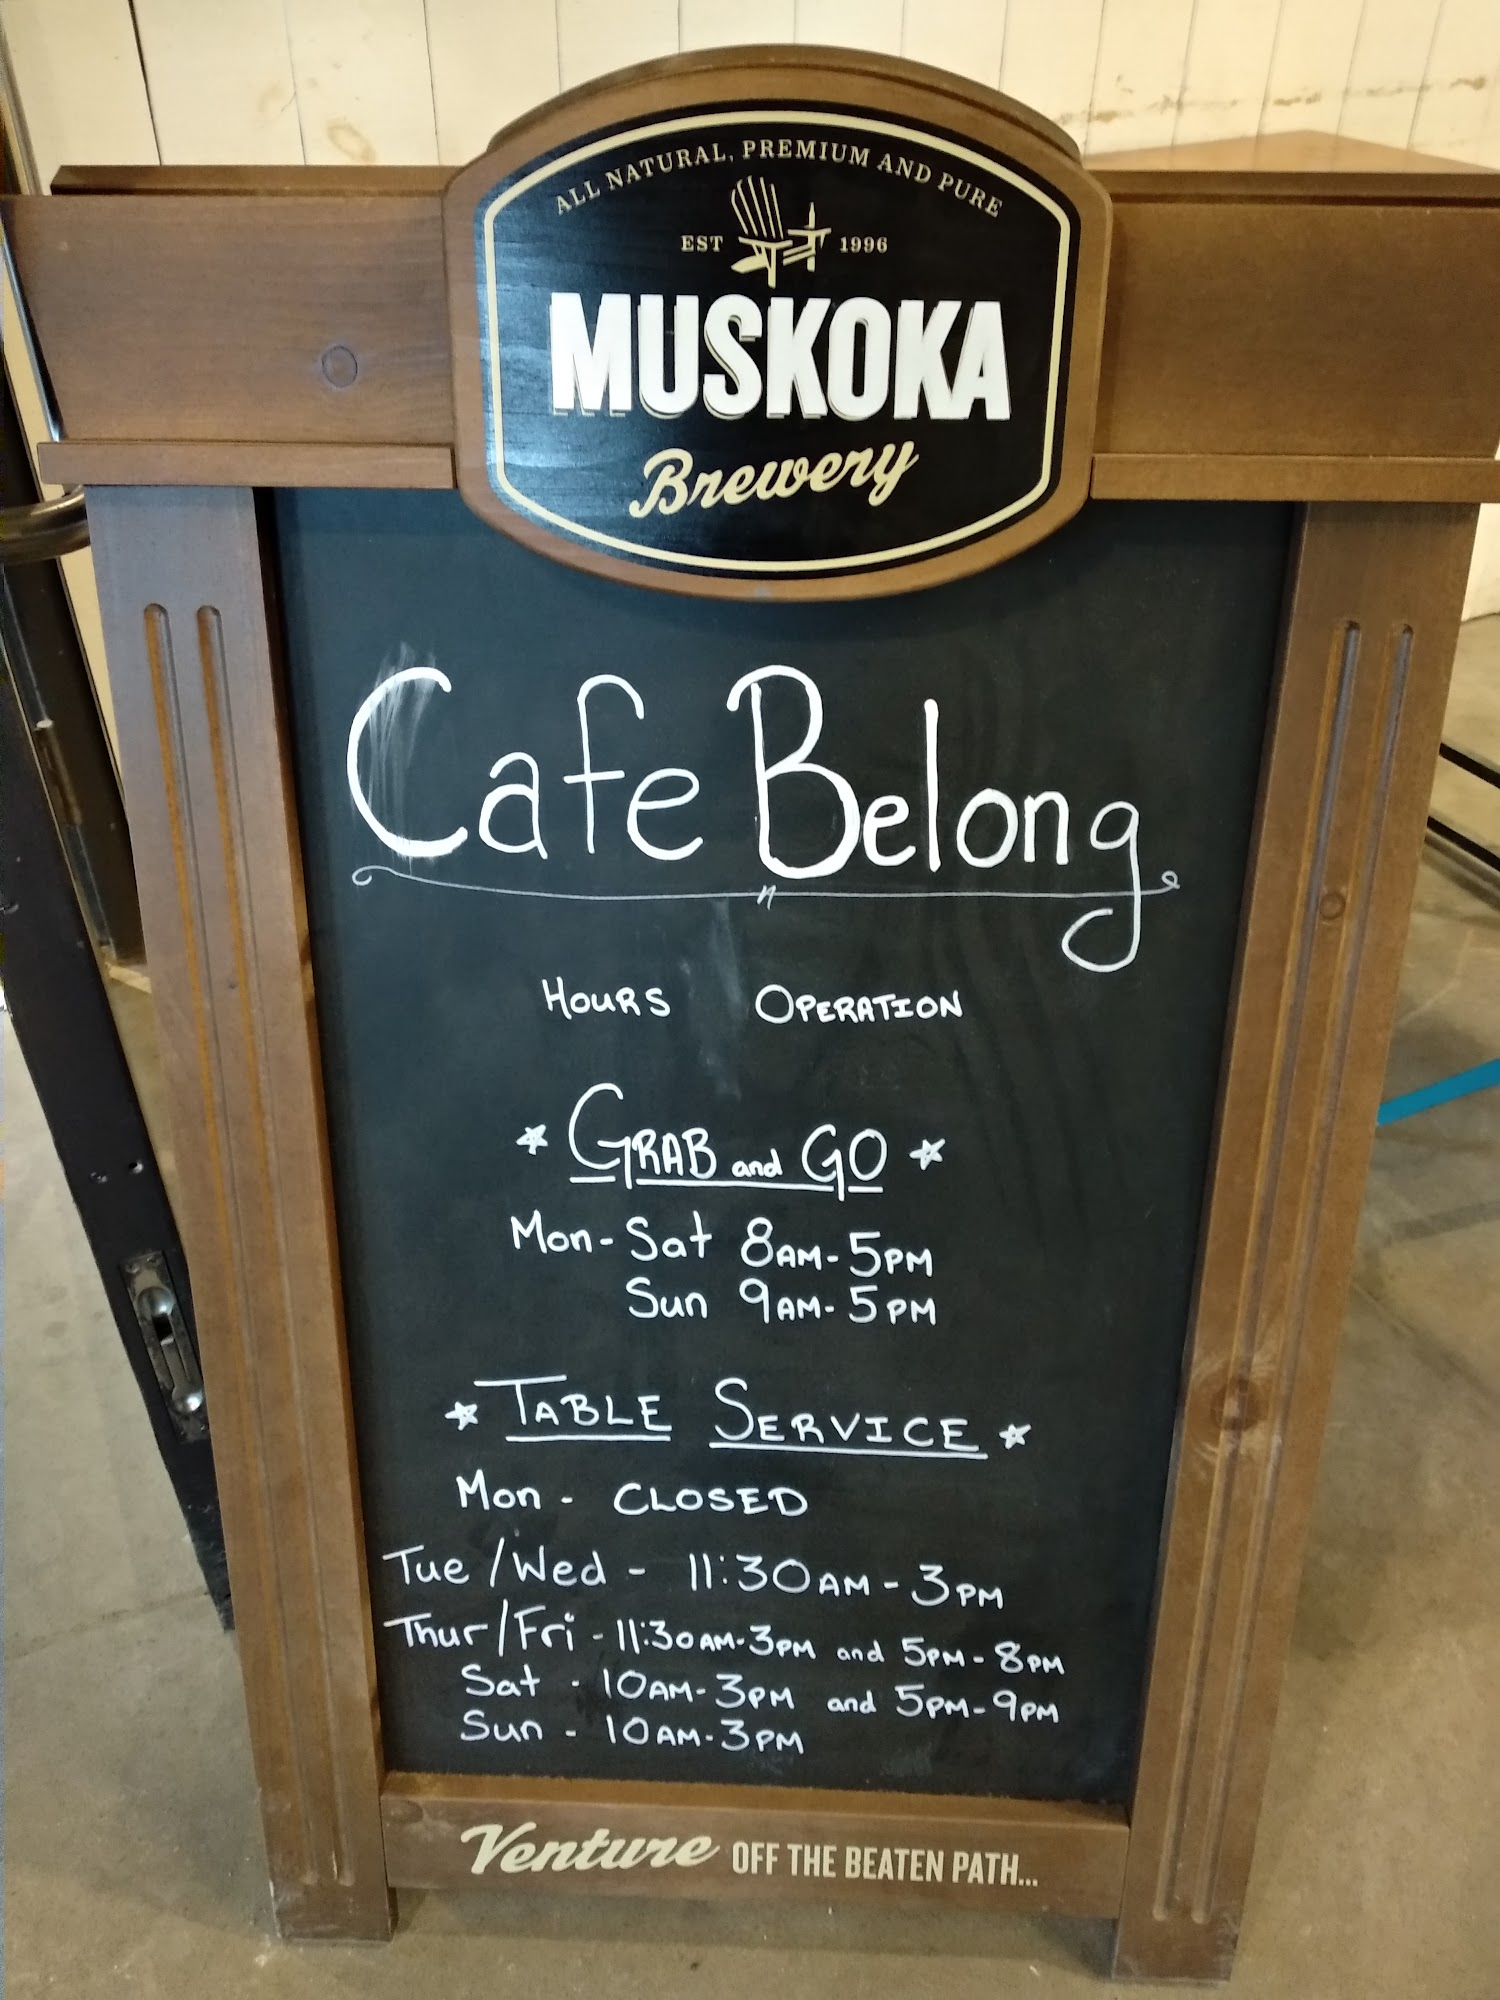 ALL NATURAL, PREMIUM AND PURE
EST 1996
MUSKOKA
Brewery
Cafe Belong
HOURS OPERATION
GRAB and GO
Mon-Sat 8AM-5PM
Sun 9AM-5PM
TABLE SERVICE
Mon - CLOSED
Tue/Wed - 11:30AM-3PM
Thur/Fri - 11:30AM-3PM and 5PM-8PM
Sat - 10AM-3PM and 5PM-9PM
Sun - 10AM-3PM
Venture OFF THE BEATEN PATH...